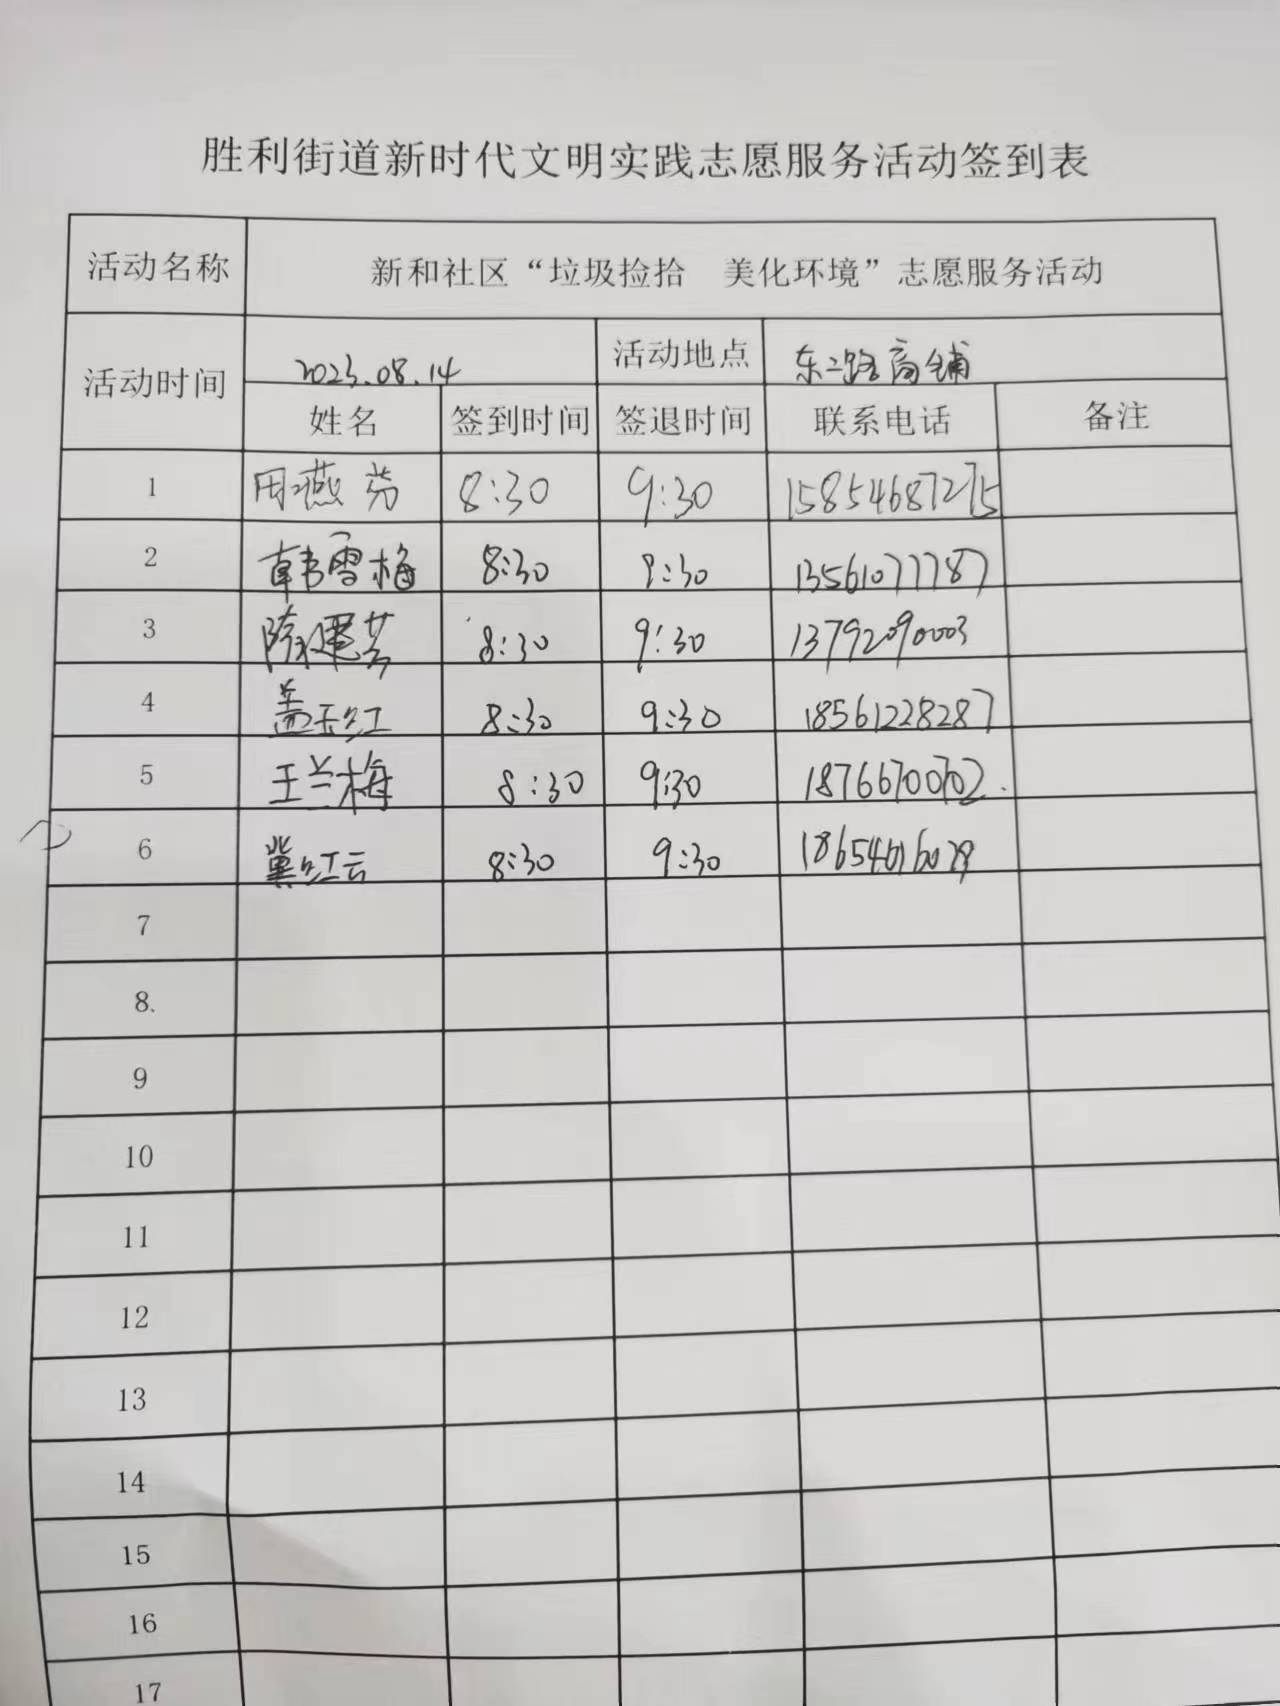 胜利街道新时代文明实践志愿服务活动签到表
活动名称 新和社区“垃圾捡拾 美化环境”志愿服务活动
活动时间 2023.08.14 活动地点 东二路商铺
姓名 签到时间 签退时间 联系电话 备注
1 周燕芬 8:30 9:30 15854687275
2 韩雪梅 8:30 9:30 13561077787
3 陈建芸 8:30 9:30 13792090003
4 盖玉红 8:30 9:30 18561228287
5 王兰梅 8:30 9:30 18766700702.
6 冀红云 8:30 9:30
7
8.
9
10
11
12
13
14
15
16
17